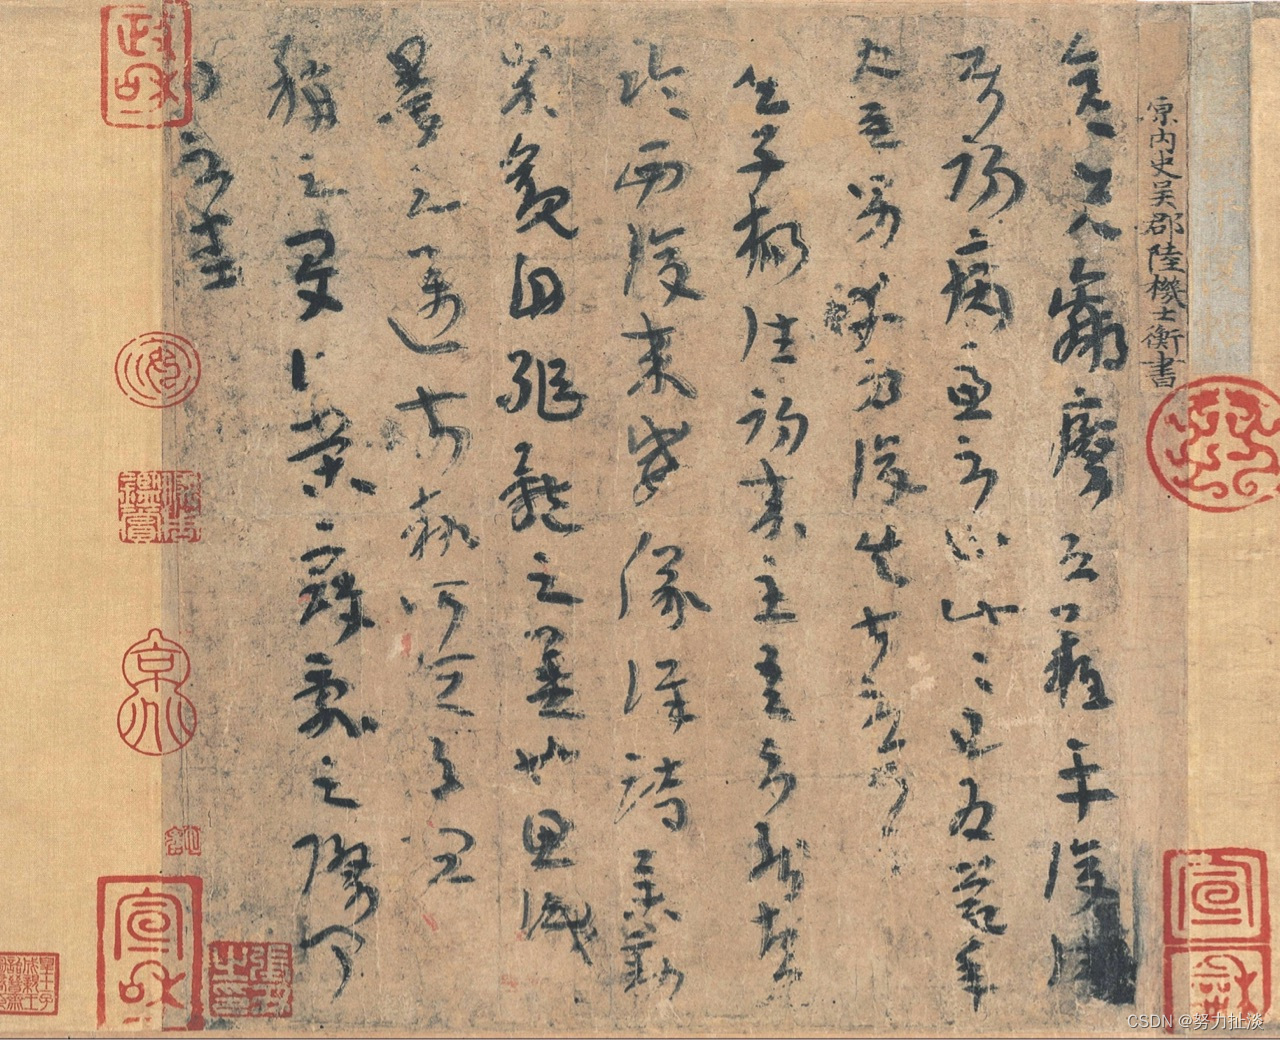 原内史吳郡陸機士衡書
彥先羸瘵恐難平復往
屬初病慮不止此此已為慶承
使唯男幸為復失前憂耳
吳子楊往初來主吾不能盡
臨西復來威儀詳跱舉動
成觀自軀體之美也思識
量之邁前執所恒有宜
稱之夏伯榮寇亂之際聞
問不悉
政和
宣和
宣和
張丑之印
CSDN @努力扯淡